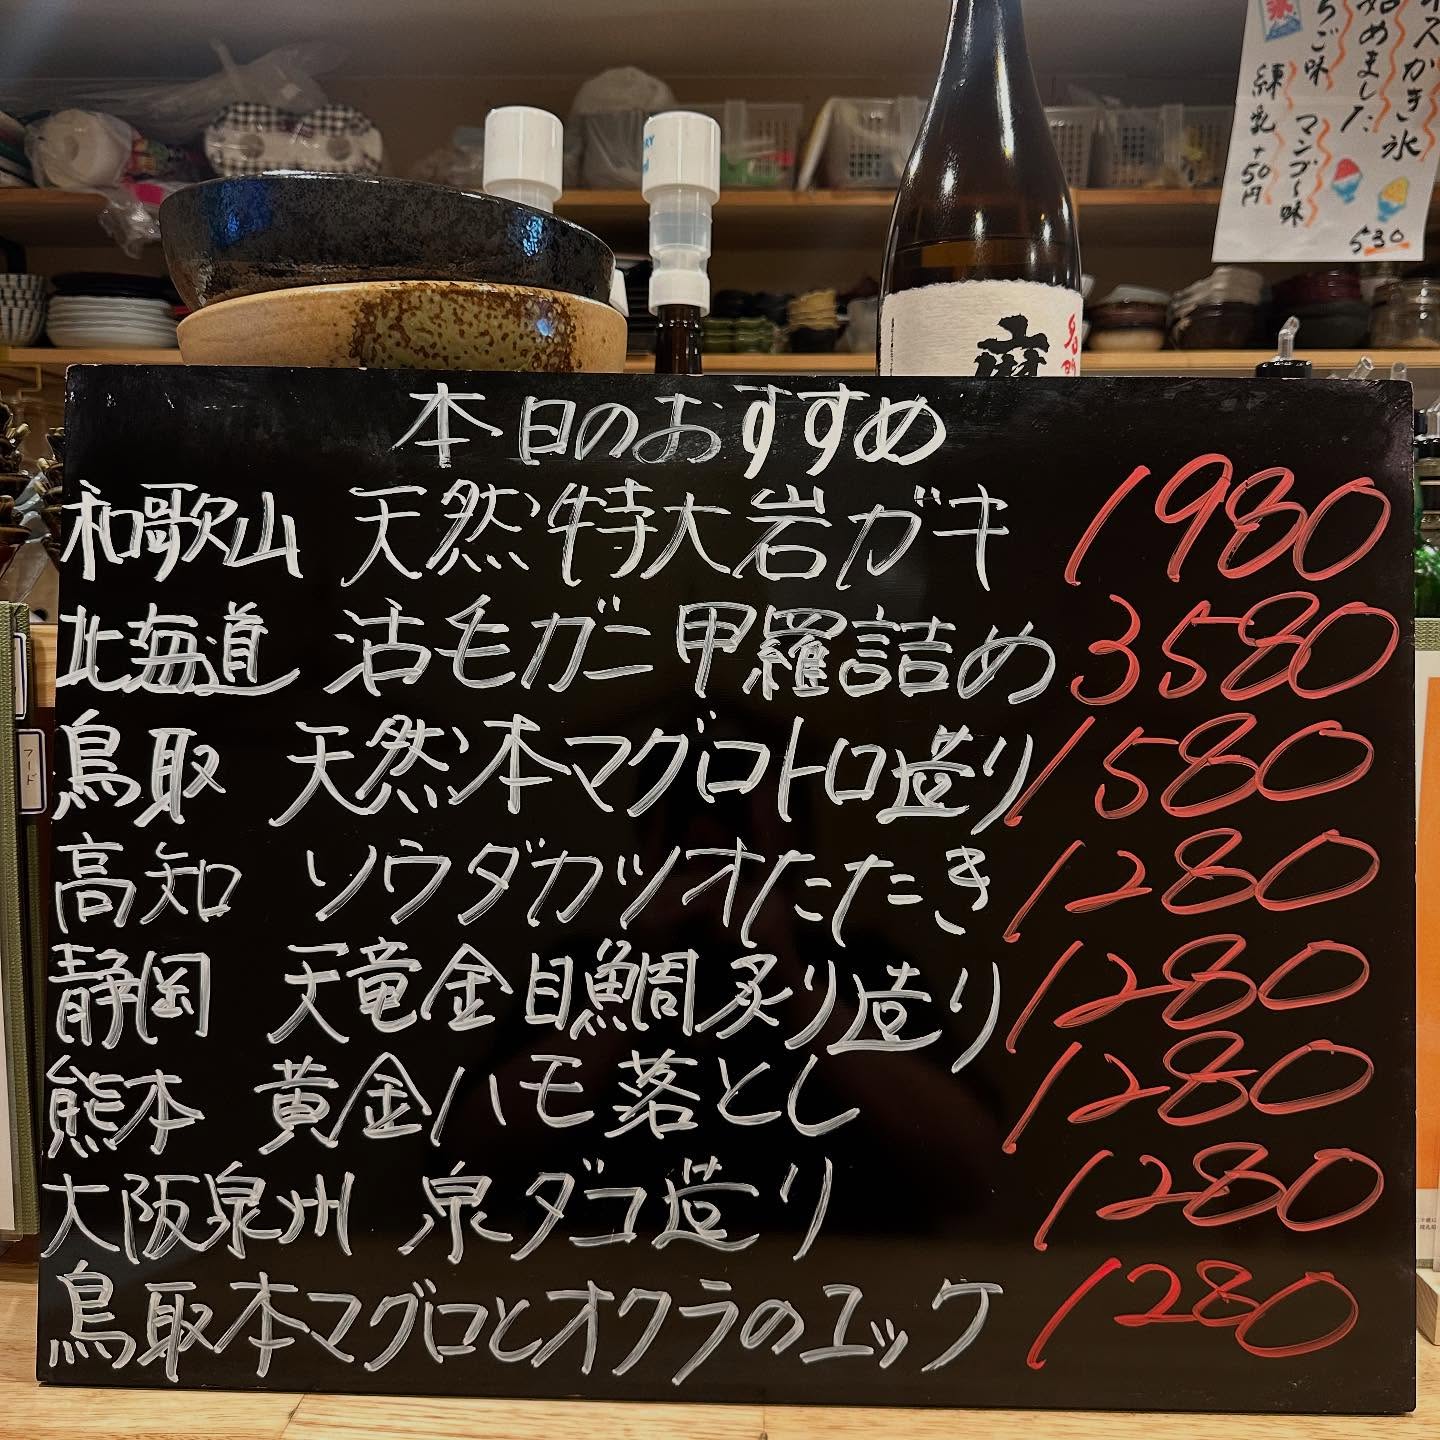 本日のおすすめ
和歌山 天然特大岩ガキ 1980
北海道 活毛ガニ甲羅詰め 3580
鳥取 天然本マグロトロ造り 1580
高知 ソウダカツオたたき 1280
静岡 天竜金目鯛炙り造り 1280
熊本 黄金ハモ落とし 1280
大阪泉州 泉ダコ造り 1280
鳥取本マグロとオクラのユッケ 1280
イスかき氷
始めました
ちご味 マンゴー味
練乳+50円
530
フード